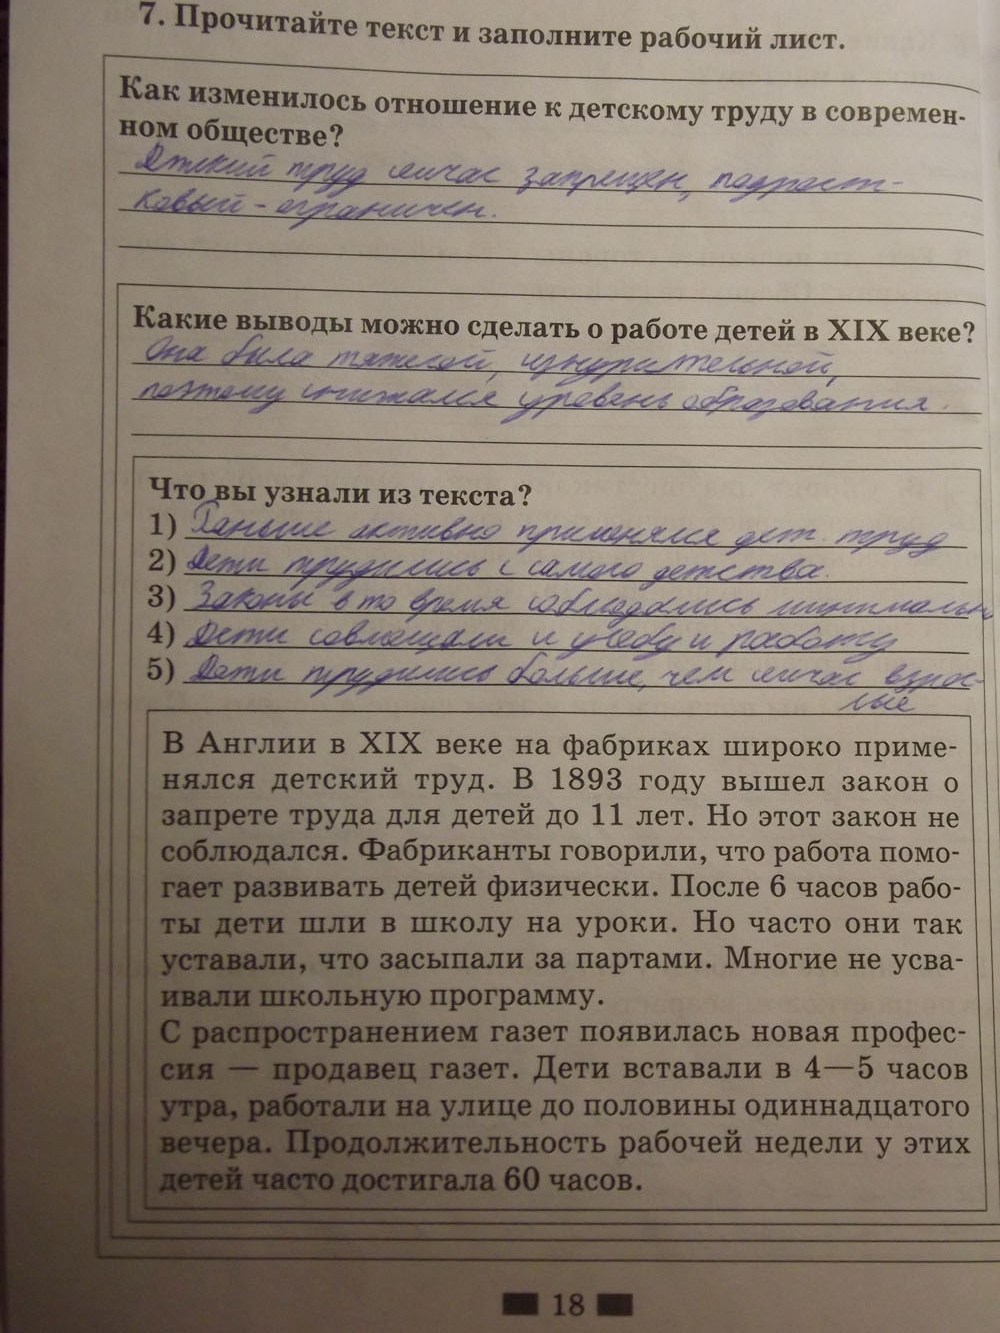 7. Прочитайте текст и заполните рабочий лист.
Как изменилось отношение к детскому труду в современ-
ном обществе?
Детский труд сейчас запрещен, подрост-
ковый - ограничен.
Какие выводы можно сделать о работе детей в XIX веке?
Она была тяжелой, изнурительной,
поэтому снижался уровень образования.
Что вы узнали из текста?
1) Раньше активно применялся дет. труд
2) Дети трудились с самого детства.
3) Законы в то время соблюдались минимально
4) Дети совмещали и учебу и работу
5) Дети трудились больше, чем сейчас взрос-
лые
В Англии в XIX веке на фабриках широко приме-
нялся детский труд. В 1893 году вышел закон о
запрете труда для детей до 11 лет. Но этот закон не
соблюдался. Фабриканты говорили, что работа помо-
гает развивать детей физически. После 6 часов рабо-
ты дети шли в школу на уроки. Но часто они так
уставали, что засыпали за партами. Многие не усва-
ивали школьную программу.
С распространением газет появилась новая профес-
сия — продавец газет. Дети вставали в 4—5 часов
утра, работали на улице до половины одиннадцатого
вечера. Продолжительность рабочей недели у этих
детей часто достигала 60 часов.
18